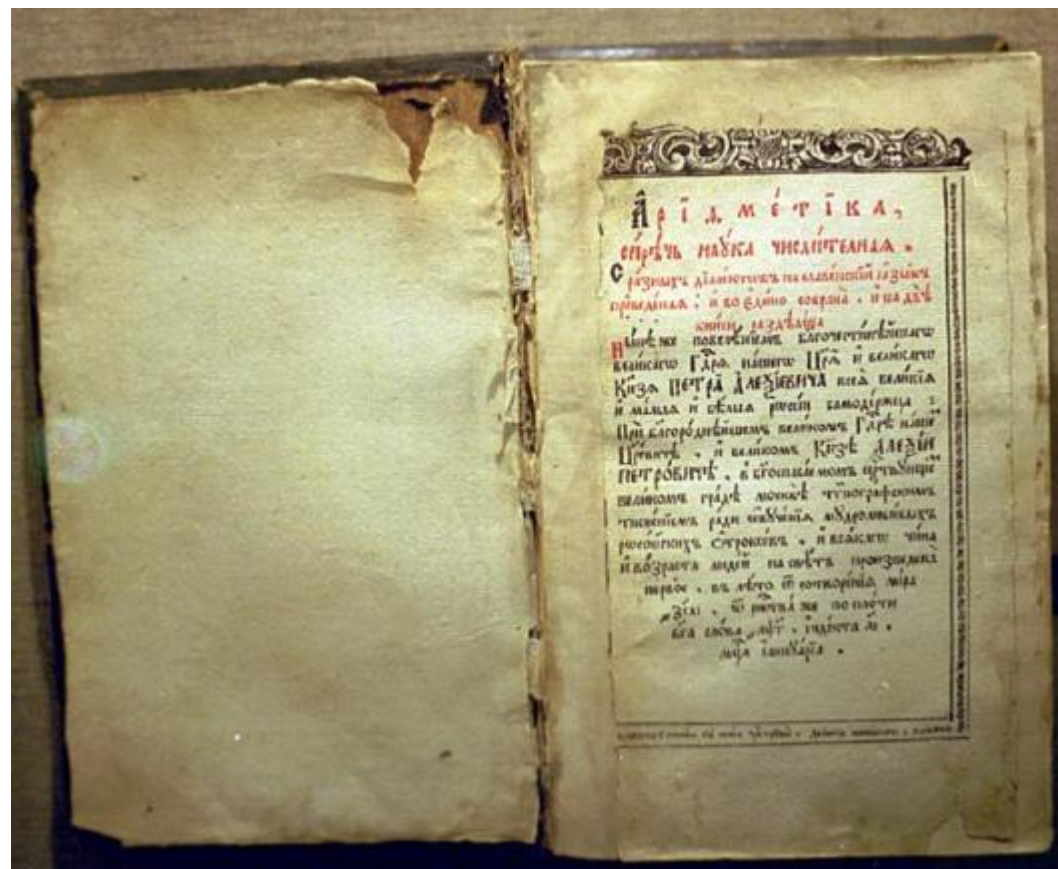 Арїѳмётїка,
сирѣчь наука числительная.
С разныхъ дїалектовъ на славенскїй языкъ
преведеная, и во едино собрана, и на двѣ
книги раздѣлена
Нынѣ же повелѣнїемъ благочестивѣйшагѡ
великагѡ Гдⷭ҇рѧ нашегѡ Цр҃ѧ и великагѡ
Кнѧзѧ ПЕТРА АЛЕѮїЕВИЧА всеѧ великїѧ
и малыѧ и бѣлыѧ рѡссїи самодержца :
При благороднѣйшемъ великомъ Гдⷭ҇рѣ нашемъ
Цр҃евичѣ, и великомъ Кнѧзѣ АЛЕѮїИ
ПЕТРОВИЧѢ, в бг҃оспасаемомъ црⷭ҇твующемъ
великомъ градѣ москвѣ тѷпографскимъ
тисненїемъ ради ѡбученїѧ мудролюбивыхъ
рѡссїйскихъ ѻтрокѡвъ, и всѧкагѡ чина
и возраста людей на свѣтъ произведена
первое, въ лѣто ѿ сотворенїѧ мїра
҂зсаі, ѿ ржⷭ҇тва же по плоти
бг҃а слова ҂аѱг, індїкта аі,
мцⷭ҇а іаннуарїа.